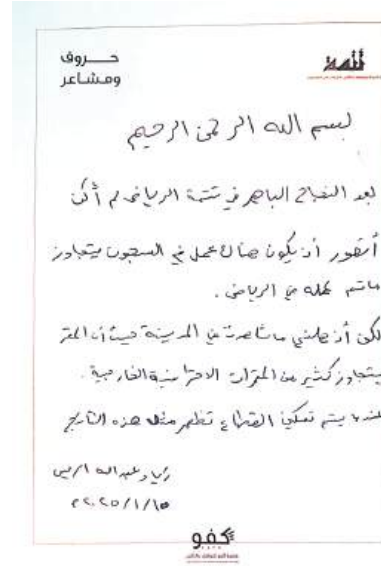 حروف
ومشاعر
تتمة
بسم الله الرحمن الرحيم
بعد النجاح الباهر في تتمة الرياض لم أكن
أتصور أن يكون هناك عمل في السجون يتجاوز
ماتم عمله في الرياض .
لكن أذهلني ماشاهدت في المدينة حيث أن المقر
يتجاوز كثير من المقرات الاحترافية الخارجية .
عندما يتم تمكين القطاع تظهر مثل هذه النتائج
زياد عبدالله
٢٠٢٥/١/١٥م
كفو